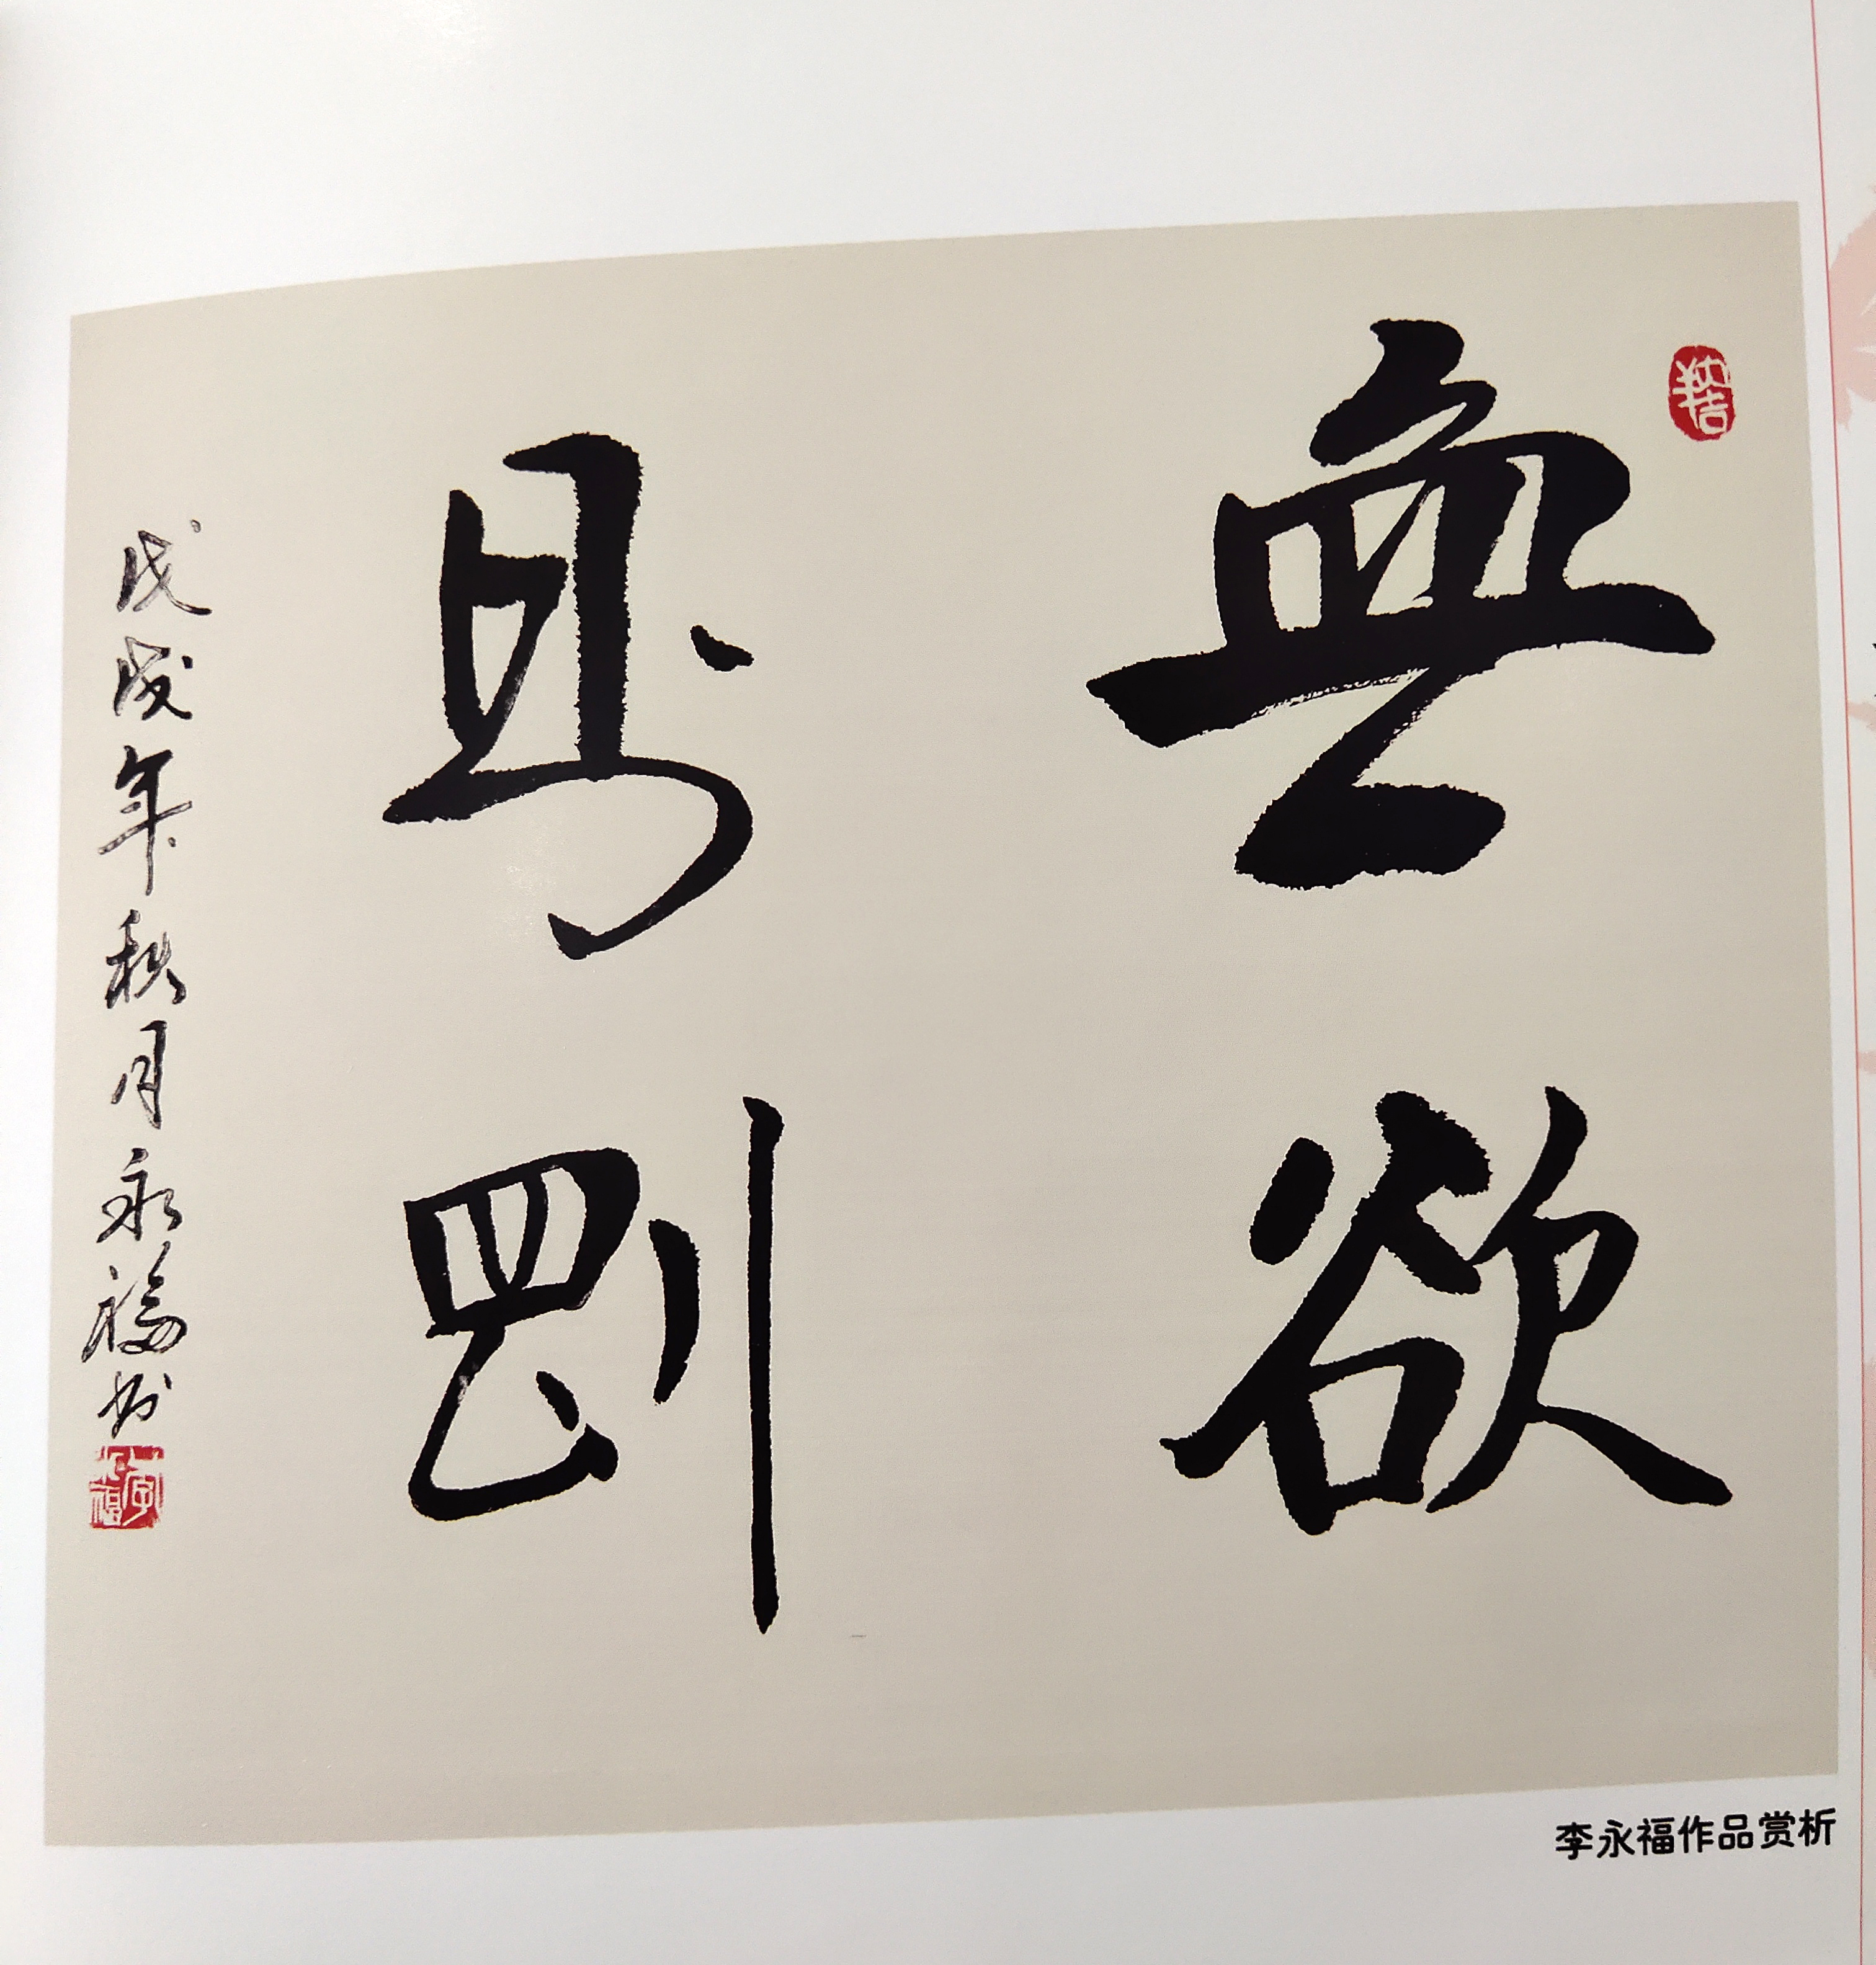 無欲
則剛
戊戌年秋月永福书
李永福作品赏析